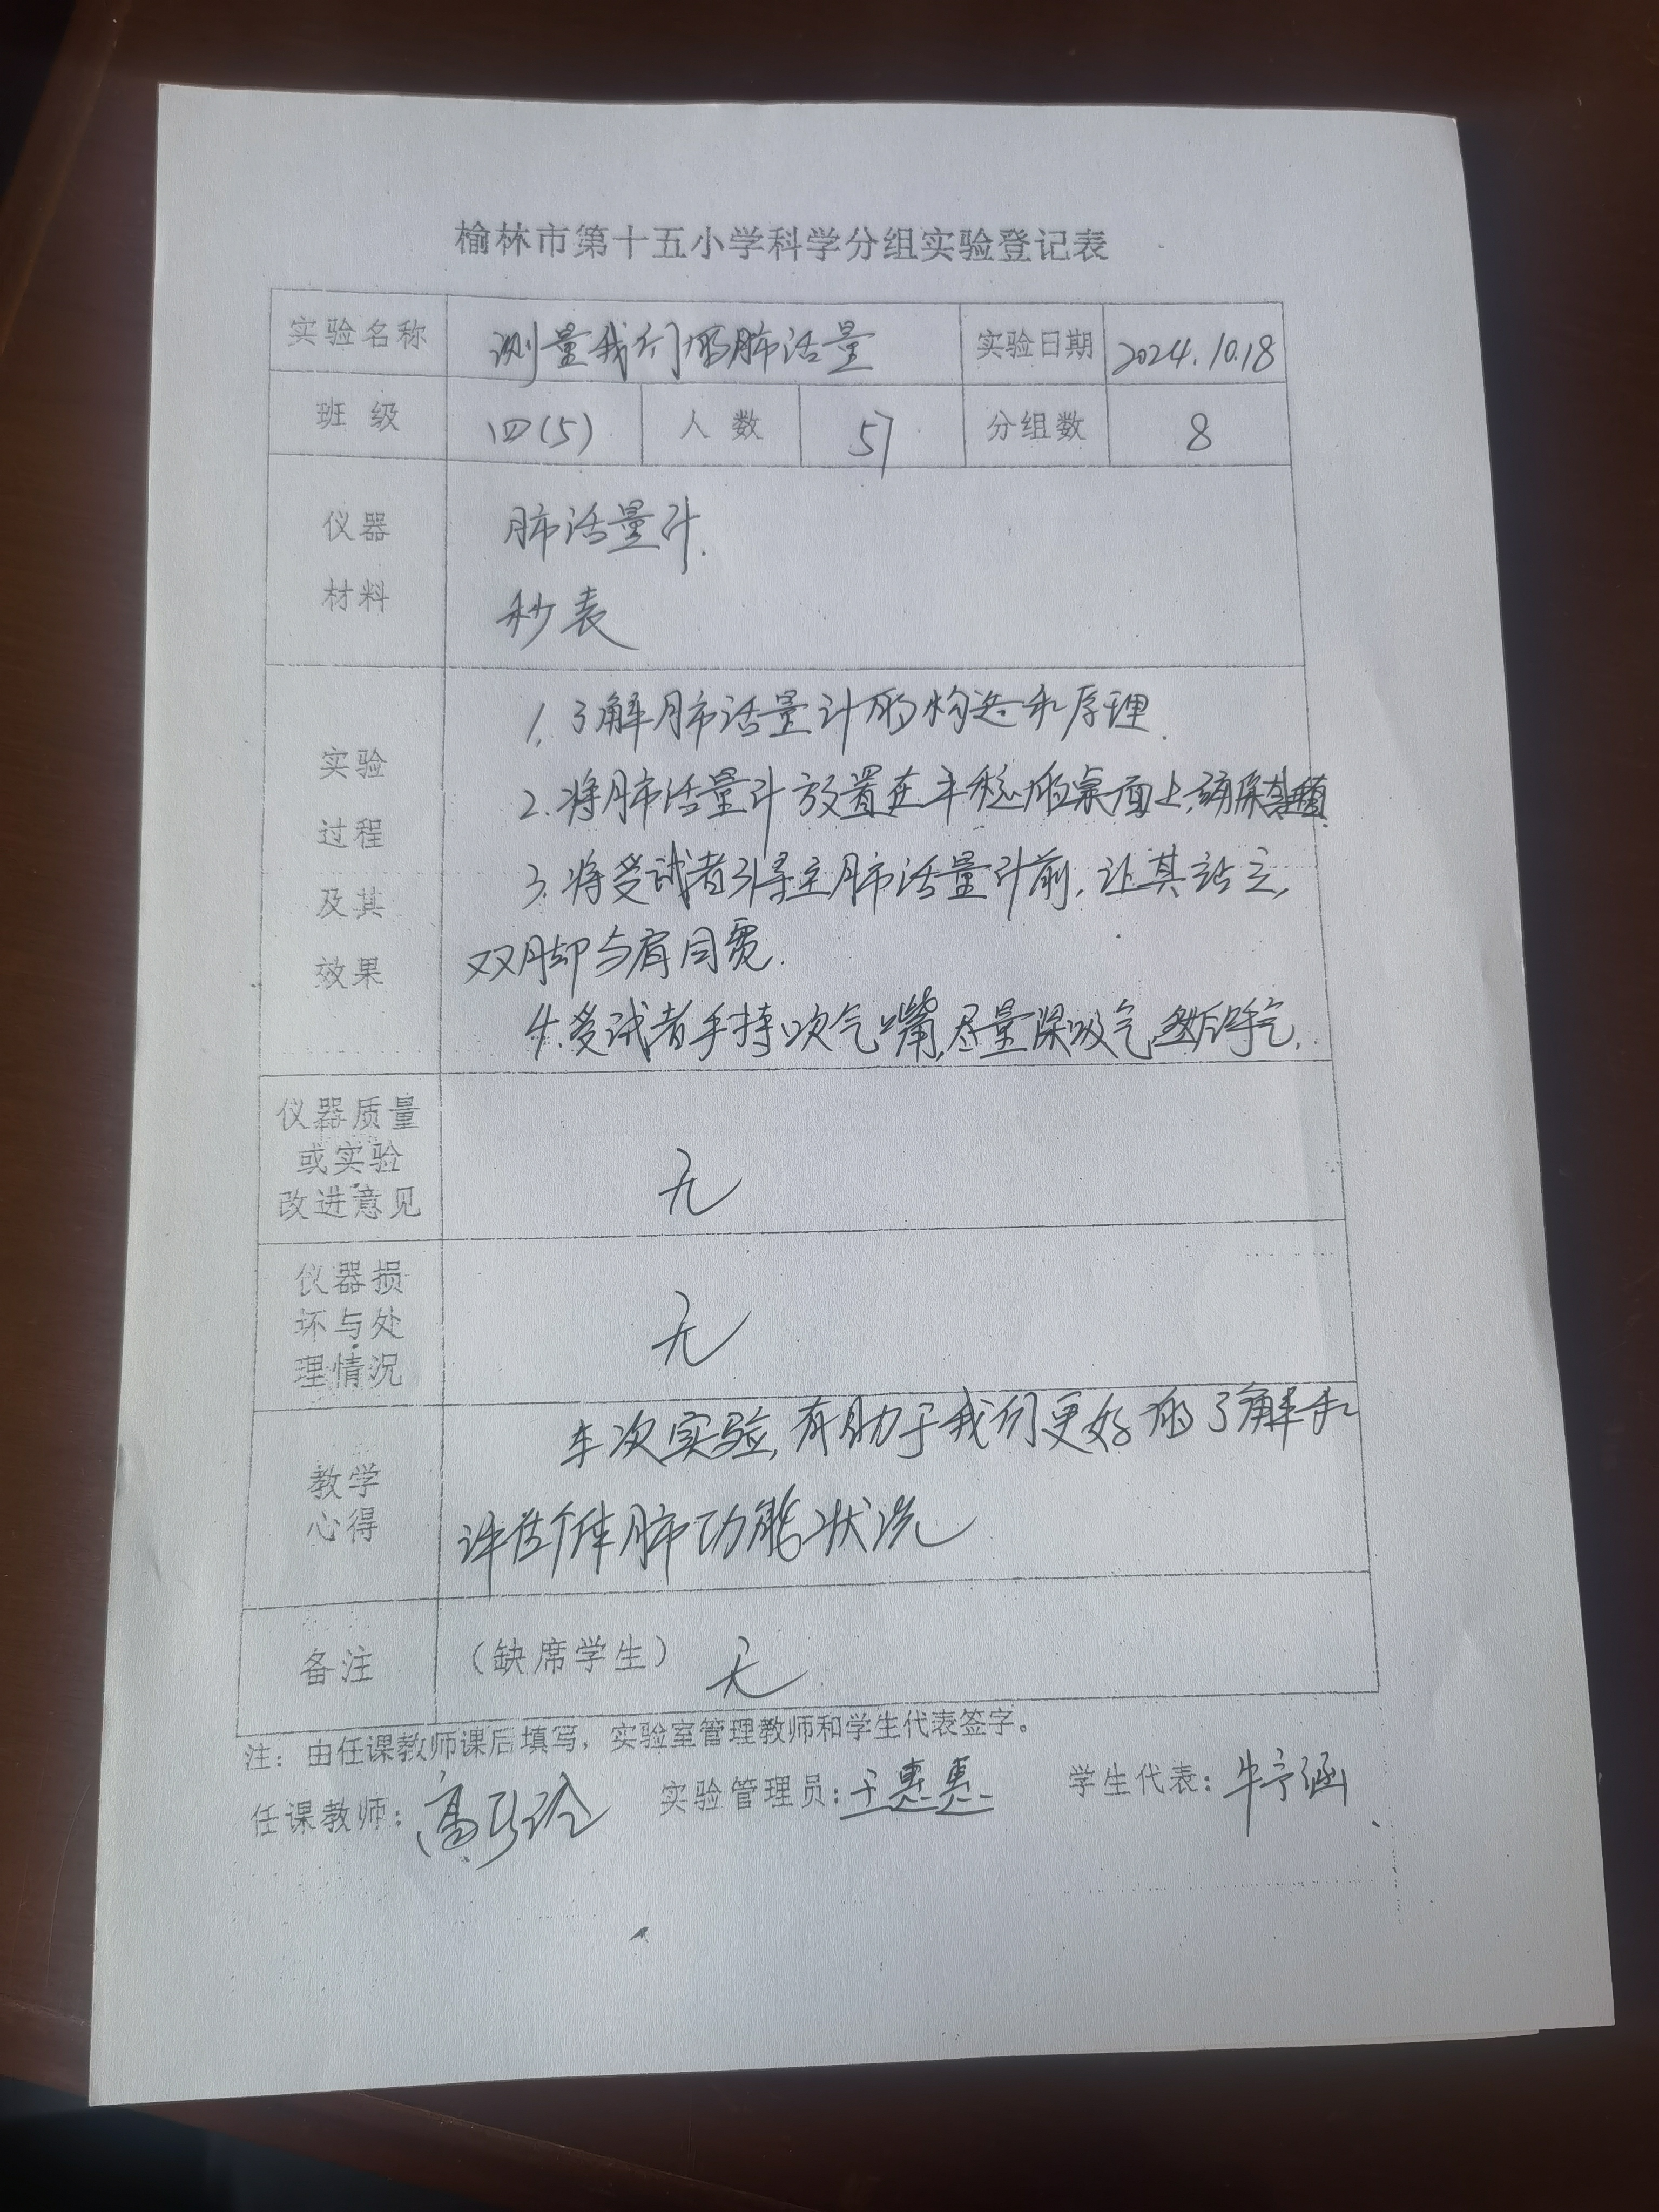 榆林市第十五小学科学分组实验登记表
实验名称 测量我们的肺活量 实验日期 2024.10.18
班级 四(5) 人数 57 分组数 8
仪器 肺活量计.
材料 秒表
1. 了解肺活量计的构造和原理.
实验
2. 将肺活量计放置在平稳的桌面上,确保其垂直.
过程
3. 将受试者引导至肺活量计前,让其站立,
及其
双脚与肩同宽.
效果
4. 受试者手持吹气嘴,尽量深吸气,然后呼气.
仪器质量
或实验
改进意见 无
仪器损
坏与处 无
理情况
本次实验,有助于我们更好的了解和
教学
心得 评估个体肺功能状况
备注 (缺席学生) 无
注:由任课教师课后填写,实验室管理教师和学生代表签字。
任课教师: 高 实验管理员:王惠惠 学生代表:牛予涵